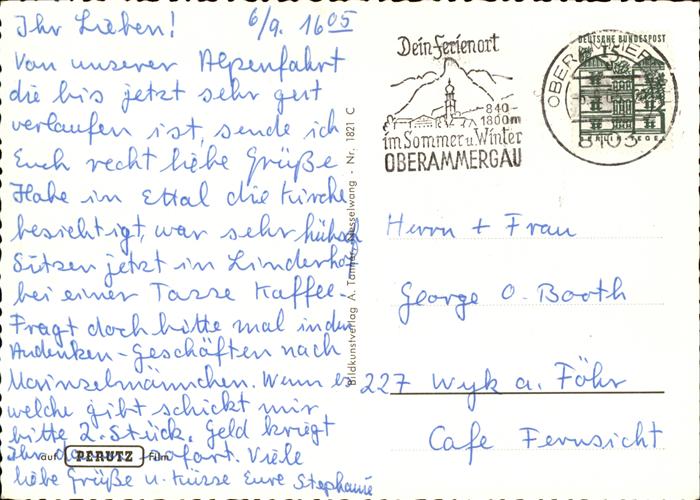 Ihr Lieben! 6/9. 16 05
Von unserer Alpenfahrt
die bis jetzt sehr gut
verlaufen ist, sende ich
Euch recht liebe Grüße
Habe in Ettal die Kirche
besichtigt, war sehr hübsch
Sitzen jetzt in Linderhof
bei einer Tasse Kaffee.
Fragt doch bitte mal in den
Andenken-Geschäften nach
Mainzelmännchen. Wenn es
welche gibt schickt mir
bitte 2. Stück. Geld kriegt
Ihr dann sofort. Viele
liebe Grüße u. Küsse Eure Stephanie
auf PERUTZ Film
Bildkunstverlag A. Tanner, Nesselwang - Nr. 1821 C
Dein Ferienort
840-
1800m
im Sommer u. Winter
OBERAMMERGAU
DEUTSCHE BUNDESPOST
15
OBERAMMERGAU
8103
Herrn + Frau
George O. Booth
227 Wyk a. Föhr
Cafe Fernsicht